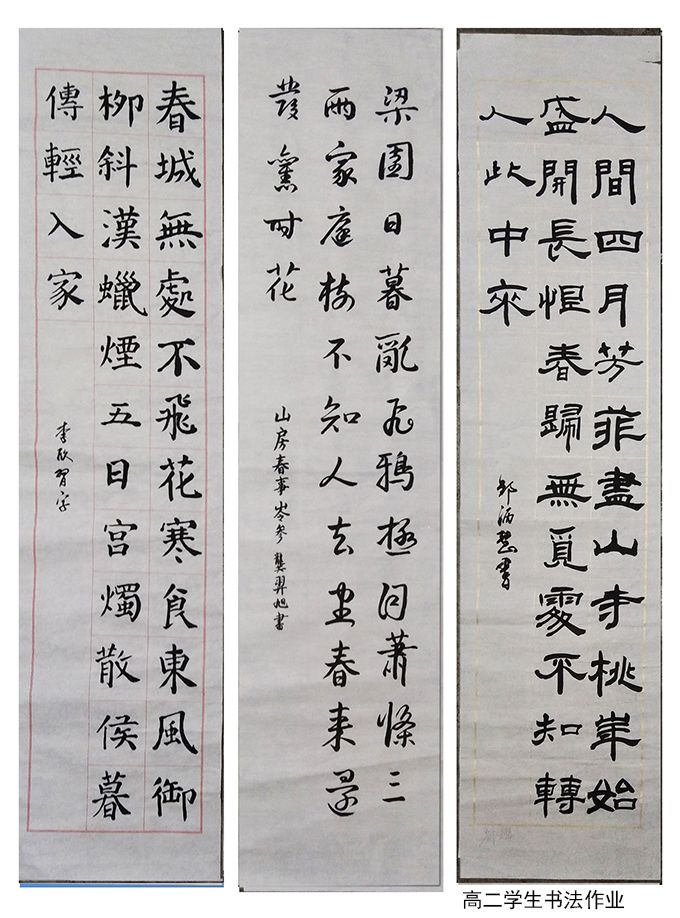 春城無處不飛花寒食東風御
柳斜漢蠟煙五日宫燭散侯暮
傳輕入家
李欣習字
梁園日暮亂飛鴉極目蕭條三
兩家庭樹不知人去盡春來還
發舊時花
山房春事岑參龔羿旭書
人間四月芳菲盡山寺桃華始
盛開長恨春歸無覓處不知轉
入此中來
慧書
高二学生书法作业